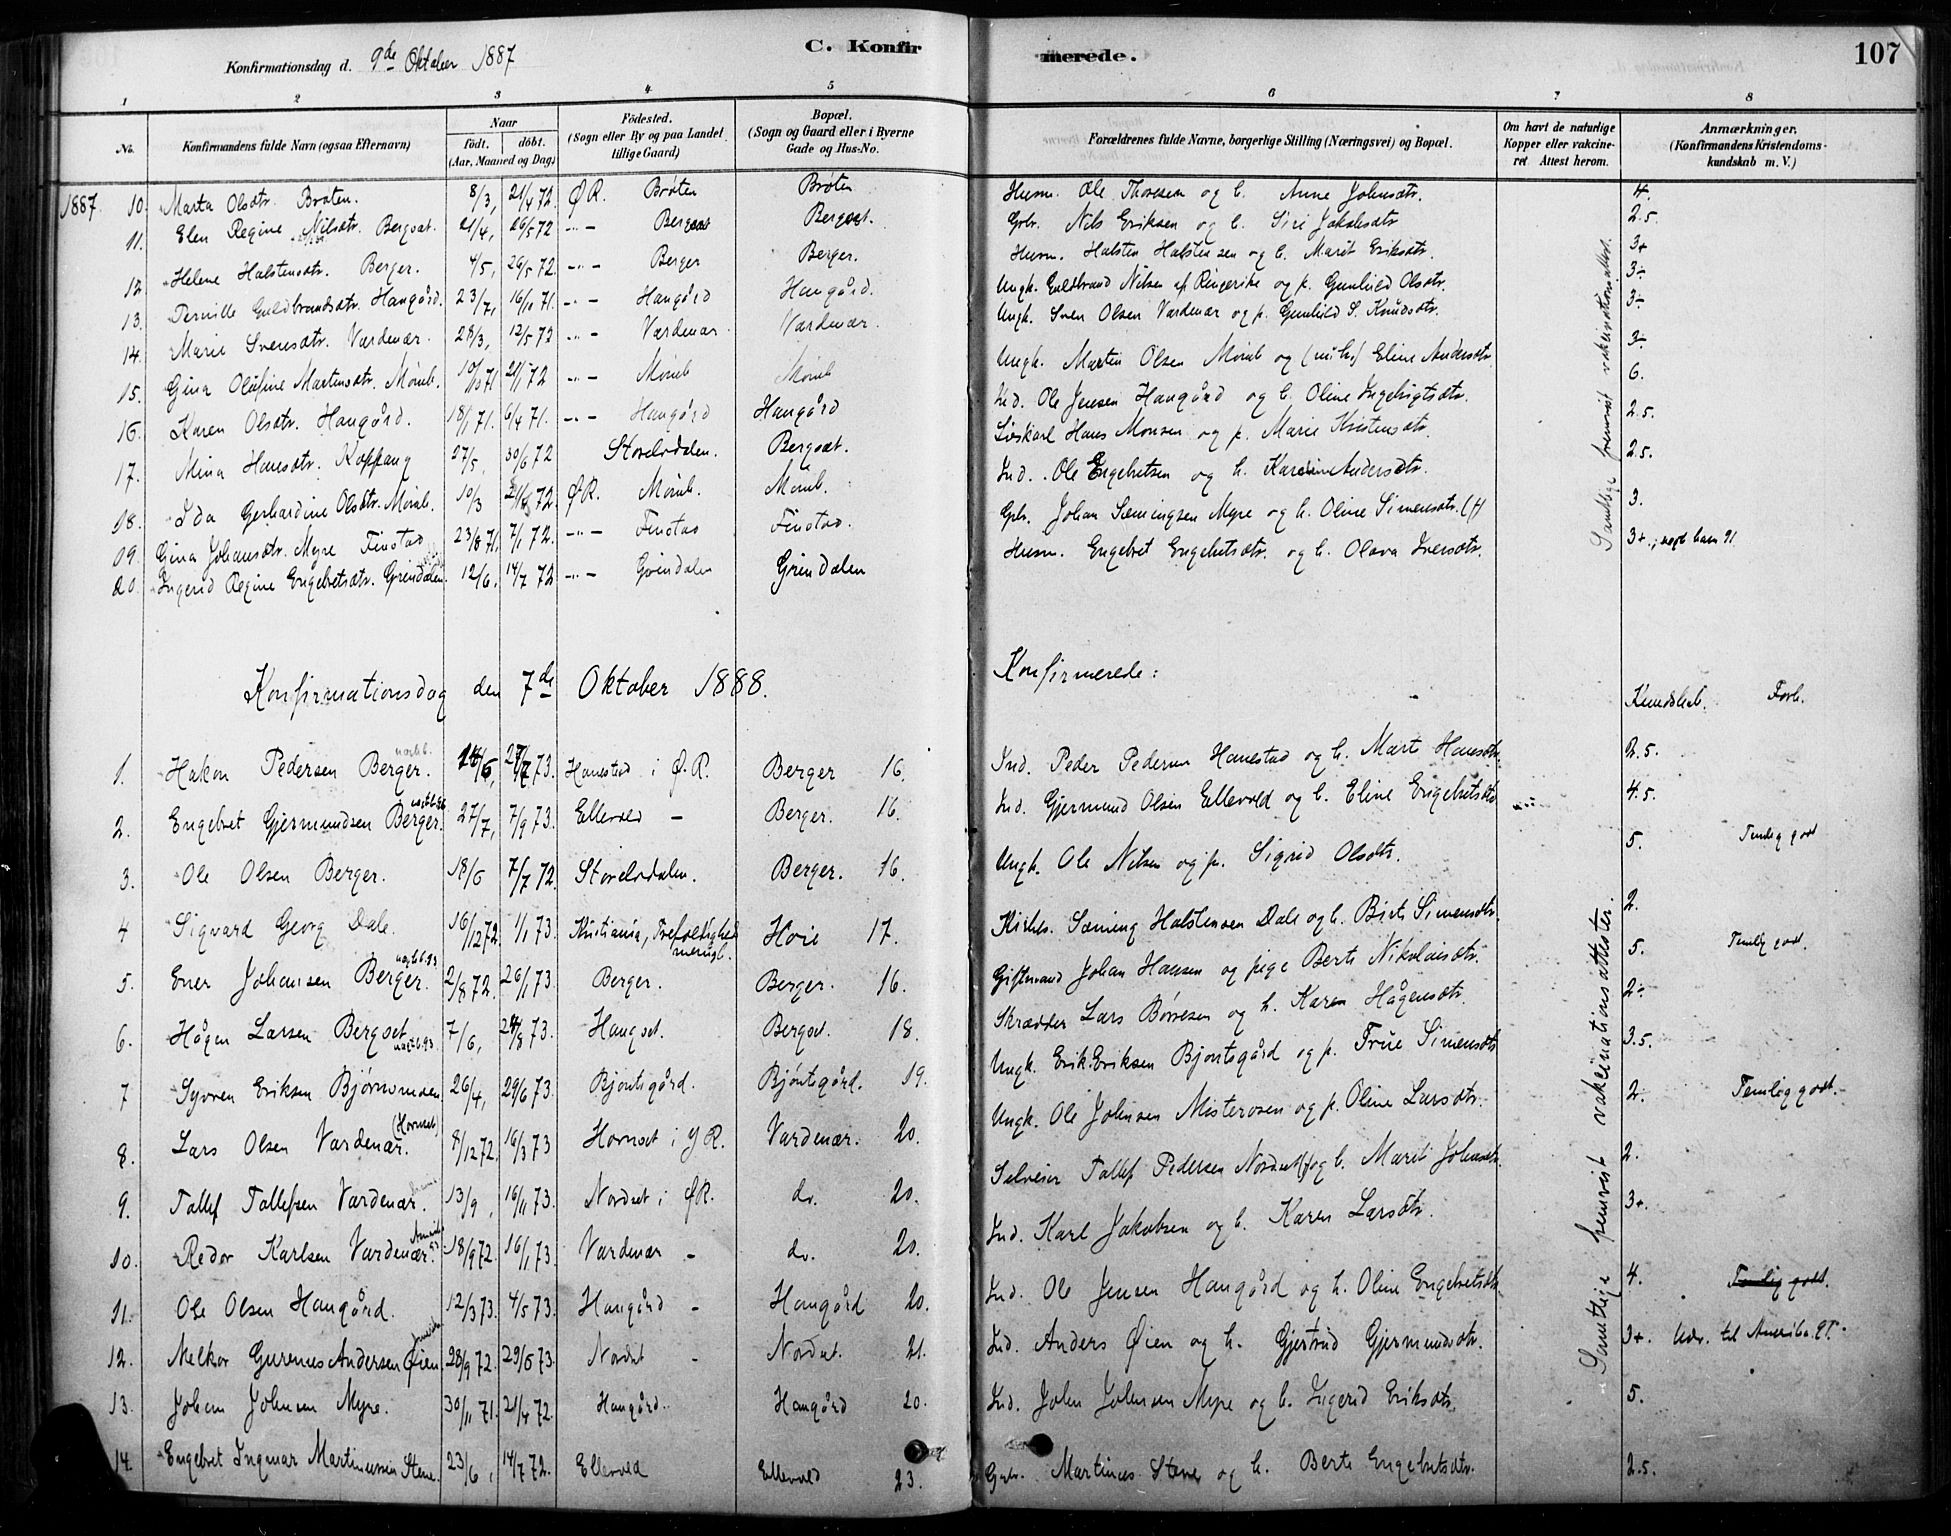 Konfirmationsdag d. 9de Oktober 1887
C. Konfirmerede.
107
1 2 3 4 5 6 7 8
No. Konfirmandens fulde Navn (ogsaa Efternavn) Naar födt. döbt. (Aar, Maaned og Dag) Födested. (Sogn eller By og paa Landet tillige Gaard) Bopæl. (Sogn og Gaard eller i Byerne Gade og Hus-No. Forældrenes fulde Navne, borgerlige Stilling (Næringsvei) og Bopæl. Om havt de naturlige Kopper eller vaccineret Attest herom. Anmærkninger. (Konfirmandens Kristendomskundskab m. V.)
1887. 10. Marta Olsdtr. Bråten. 8/3, 21/4 72. ØR. Bråten Bråten Husm. Ole Thoresen og h. Anne Johnsdtr. 4.
11. Elen Regine Nilsdtr. Bergset. 21/4, 26/5 72 -"- Bergset Bergset. Gbr. Nils Eriksen og h. Siri Jakobsdtr 2.5.
12. Helene Halstensdtr. Berger. 4/5, 26/5 72. -"- Berger Berger. Husm. Halsten Halstensen og h. Marit Eriksdtr. 3+
13. Pernille Guldbrandsdtr. Haugård. 23/7, 16/10 71. -"- Haugård Haugård. Ungk. Guldbrand Nilsen af Ringerike og p. Gunhild Olsdtr. 3-
14. Marie Svensdtr. Vardenær. 28/3, 12/5 72 -"- Vardenær. Vardenær. Ungk. Sven Olsen Vardenær og p. Gunhild S. Knudsdtr. 3-
15. Gina Olufine Martensdtr. Mömb. 10/10 71 21/1 72 -"- Mömb Mömb Ungk. Marten Olsen Mömb og Eline Andersdtr 3-
16. Karen Olsdtr. Haugård. 18/1 71. 6/4 71. -"- Haugård Haugård Ind. Ole Jensen Haugård og h. Oline Ingebrigtsdtr. 6.
17. Mina Hansdtr. Koppang 27/5, 30/6 72 Storelvdalen. Bergset. Hans Monsen og p. Marie Kristensdtr. 2.5.
18. Ida Gerhardine Olsdtr. Mömb. 10/3 72. ØR. Mömb. Mömb. Ind. Ole Engebretsen og h. Karoline Andersdtr. 2.5.
19. Gina Johansdtr. Myre Finstad 23/8 71. 7/1 72. -"- Finstad Finstad. Gbr. Johan Sæmingsen Myre og h. Oline Simensdtr. (†) 3.
20. Ingerid Regine Engebretsdtr. Grindalen. 12/6, 14/7 72 -"- Grindalen Grindalen Husm. Engebret Engebretsdtr. og h. Olava Iversdtr. 3+.
Samtlige fremvist vakcinationsattest.
Konfirmationsdag den 7de Oktober 1888. Konfirmerede:
Kundskab. Forh.
1. Håkon Pedersen Berger. 14/6, 27/7 73. Hanestad i Ø.R. Berger 16. Ind. Peder Pedersen Hanestad og h. Mart Hansdtr. 2.5.
2. Engebret Gjermundsen Berger. 27/7, 7/9 73. Ellevold - Berger. 16. Ind. Gjermund Olsen Ellevold og h. Eline Engebretsdtr 4.5.
3. Ole Olsen Berger. 18/6 7/7 72. Storelvdalen. Berger. 16. Ungk. Ole Nilsen og p. Sigrid Olsdtr. 5. Temlig godt
4 Sigvard Georg Dale. 16/12 72. 1/1 73. Kristiania, Trefoldigheds menigh. Hoie 17. Kirkes. Sæming Halstensen Dale og h. Birte Simensdtr. 2.
5. Ener Johansen Berger. 2/8 72. 26/1 73. Berger. Berger. 16. Giftmand Johan Hansen og pige Berte Nikolaisdtr. 5. Temlig godt.
6. Hågen Larsen Bergset 7/6, 24/8 73. Haugset. Bergset. 18. Skrædder Lars Børresen og h. Karen Hågensdtr. 2-
7 Syvren Eriksen Bjørnsmoen 26/4, 29/6 73. Bjøntsgård. Bjøntsgård. 19. Ungk. Erik Eriksen Bjøntsgård og p. Frue Simensdtr 3.5.
8. Lars Olsen Vardenær. (Hornset) 8/12 72, 16/3 73 Hornset i YR. Vardenær. 20. Ungk. Ole Johnsen Misterosen og p. Oline Larsdtr. 2. Temlig godt.
9. Tallef Tallefsen Vardenær. 13/9, 16/11 73. Nordset i ØR. do. 20. Selveier Tallef Pedersen Nordset (†) og h. Marit Johnsdtr. 2.
10. Redor Karlsen Vardenær. 18/9 72. 16/1 73. Vardenær - do. 20. Ind. Karl Jakobsen og h. Karen Larsdtr. 3+.
11. Ole Olsen Haugård. 12/3 73. 4/5 73. Haugård - Haugård 20. Ind. Ole Jensen Haugård og h. Oline Engebretsdtr 4. Temlig godt.
12. Melkor Gurenius Andersen Øien 28/9 72. 29/6 73. Nordset - Nordset. 21. Ind. Anders Øien og h. Gjertrud Gjermundsdtr. 3+. Udv. til Amerika 91.
13. Johan Johnsen Myre. 30/11 71. 21/4 72. Haugård. Haugård 20. Ind. John Johnsen Myre og h. Ingerid Eriksdtr. 5.
14. Engebret Ingmar Martinussen Stene. 23/6, 14/7 72. Ellevold Ellevold 23. Gbr. Martinus Stene og h. Berte Engebretsdtr. 2.5.
Samtlige fremvist vakcinationsattester.